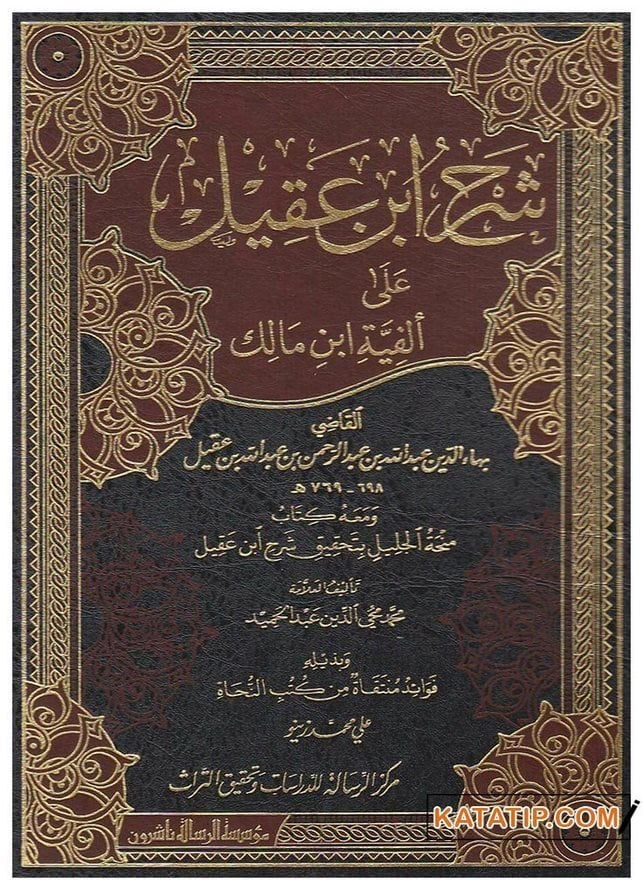 شرح ابن عقيل
على
ألفية ابن مالك
القاضي
بهاء الدين عبد الله بن عبد الرحمن بن عبد الله بن عقيل
٦٩٨ - ٧٦٩ هـ
ومعه كتاب
منحة الجليل بتحقيق شرح ابن عقيل
تأليف العلامة
محمد محيي الدين عبد الحميد
وبذيله
فوائد منتقاة من كتب النحاة
علي محمد زينو
مركز الرسالة للدراسات وتحقيق التراث
مؤسسة الرسالة ناشرون
KATATIP.COM